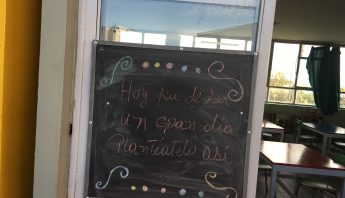 Hoy puede ser
un gran día
Planteatelo así